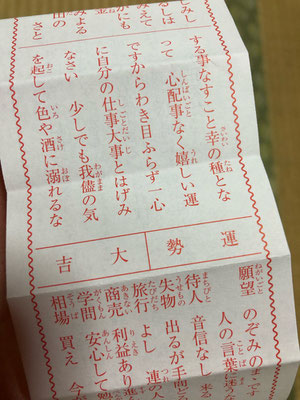 する事なすこと幸の種とな
って 心配事なく嬉しい運
ですからわき目ふらず一心
に自分の仕事大事とはげみ
なさい 少しでも我儘の気
を起して色や酒に溺れるな
運勢
大吉
願望 のぞみのま
人の言葉
待人 音信なし 来
失物 出るが手間
旅行 よし 連
商売 利益あり
学問 安心して
相場 買え 今